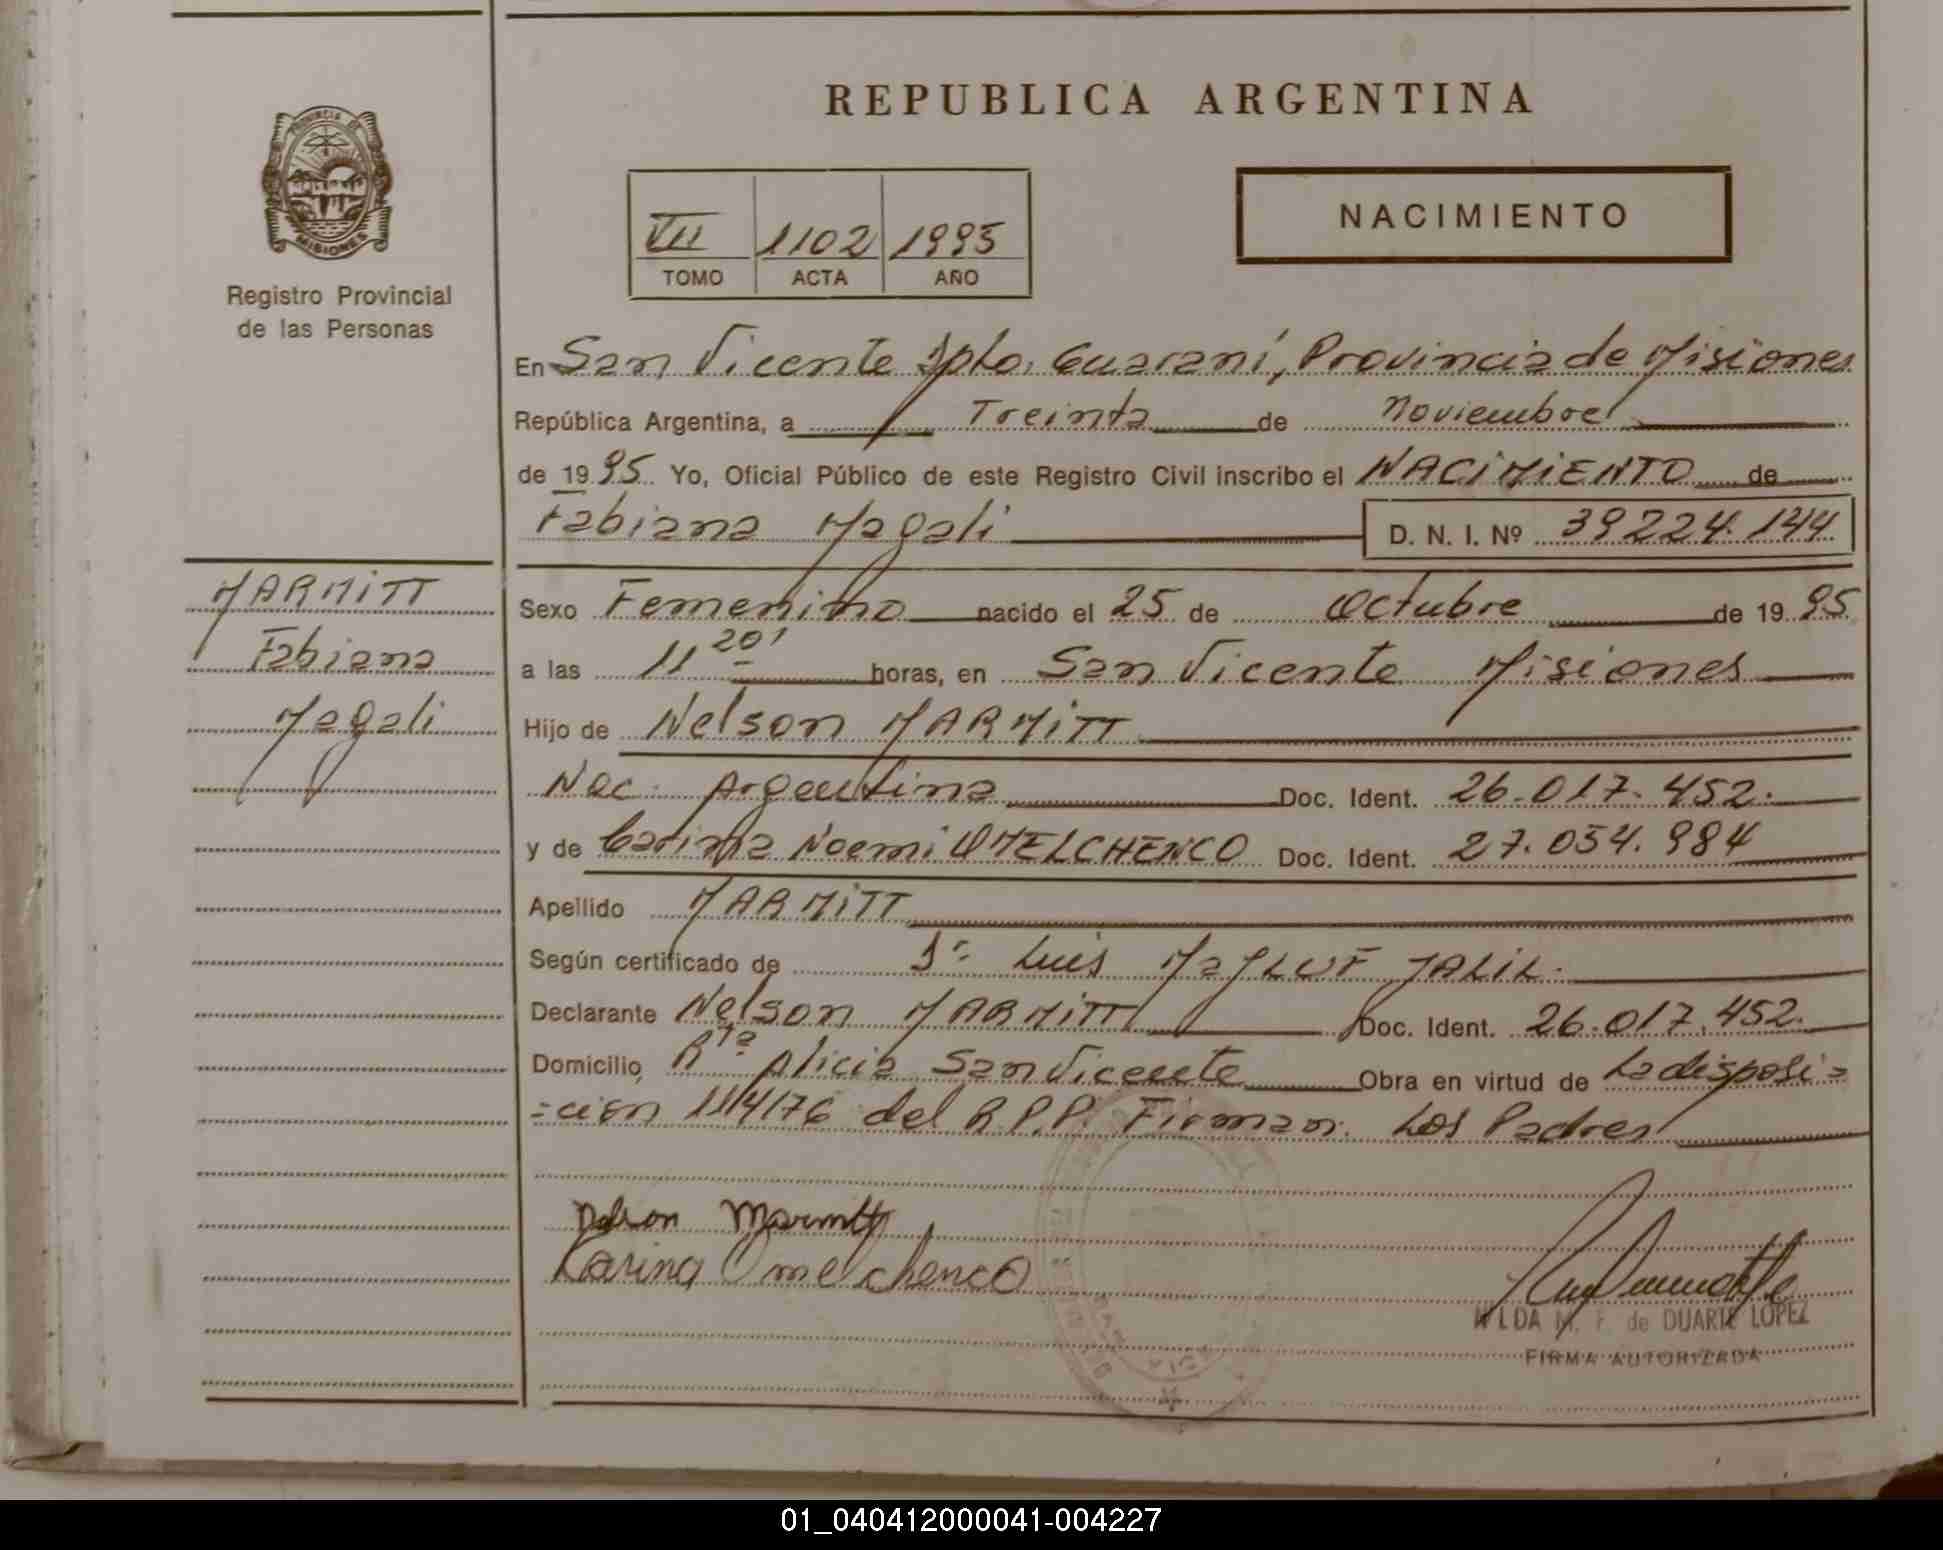 REPUBLICA ARGENTINA
PROVINCIA DE
MISIONES
Registro Provincial
de las Personas
VII 1102 1995
TOMO ACTA AÑO
NACIMIENTO
En San Vicente Dpto. Guaraní, Provincia de Misiones
República Argentina, a Treinta de Noviembre
de 1995 Yo, Oficial Público de este Registro Civil inscribo el NACIMIENTO de
Fabiana Magali D. N. I. Nº 39224.144
MARMITT
Fabiana
Magali
Sexo Femenino nacido el 25 de Octubre de 1995
a las 11 20' horas, en San Vicente Misiones
Hijo de Nelson MARMITT
Nac. Argentina Doc. Ident. 26.017.452.
y de Carina Noemi OMELCHENCO Doc. Ident. 27.054.984
Apellido MARMITT
Según certificado de Dr. Luis MaYLUF JALIL.
Declarante Nelson MARMITT Doc. Ident. 26.017.452.
Domicilio Rta Alicia San Vicente Obra en virtud de La disposi=
=ción 114/76 del R.P.P. Firman. Los Padres
Nelson Marmitt
Karina Omelchenco
HILDA M. F. de DUARTE LOPEZ
FIRMA AUTORIZADA
01_040412000041-004227